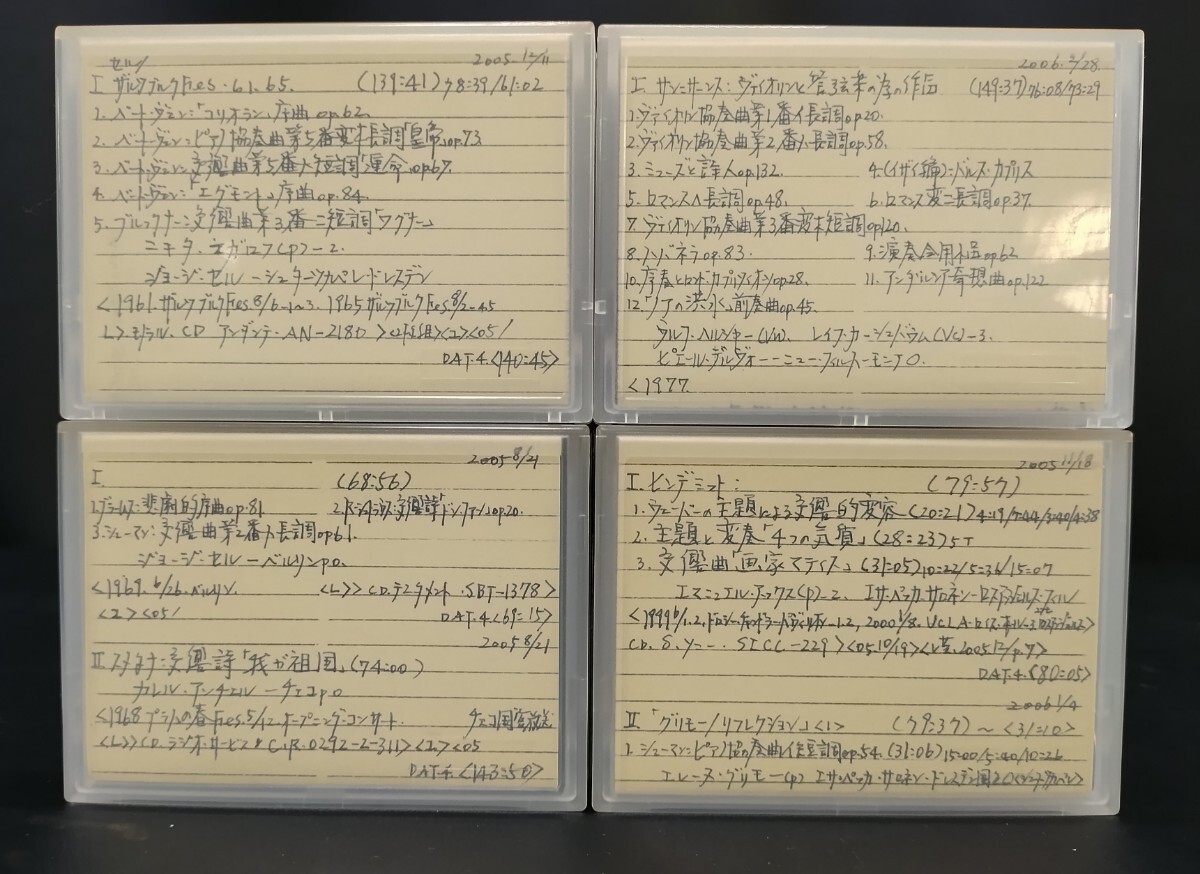 セル/
2005.12/11
I ザルツブルクFes.61.65. (139:41) 78:39/61:02
1.ベートーヴェン:「コリオラン」序曲op.62.
2.ベートーヴェン:ピアノ協奏曲第5番変ホ長調「皇帝」op.73.
3.ベートーヴェン:交響曲第5番ハ短調「運命」op.67.
4.ベートーヴェン:「エグモント」序曲op.84.
5.ブルックナー:交響曲第3番ニ短調「ワグナー」
ニキタ・マガロフ(P)-2.
ジョージ・セル-シュターツカペレ・ドレスデン
<1961.ザルツブルクFes.8/6-1~3. 1965ザルツブルクFes.8/2-4.5
L>モノラル.CD アンダンテ.AN-2180><2><05/
DAT.4.<140:45>
2006.2/28.
I.サン=サーンス:ヴァイオリンと管弦楽の為の作品 (149:37)76:08/73:29
1.ヴァイオリン協奏曲第1番イ長調op.20.
2.ヴァイオリン協奏曲第2番ハ長調op.58.
3.ミューズと詩人op.132. 4.(イザイ編)=ワルス・カプリス
5.ロマンスハ長調op.48. 6.ロマンス変ニ長調op.37.
7.ヴァイオリン協奏曲第3番変ホ短調op.120.
8.ハバネラop.83. 9.演奏会用小品op.62
10.序奏とロンド・カプリチィオーソop.28. 11.アンダルシア奇想曲op.122
12.「ノアの洪水」前奏曲op.45.
ウルフ・ヘルシャー(Vn). (Vc)-3.
ピエール・デルヴォー-ニュー・フィルハーモニアO.
<1977.
2005 8/21
I. (68:56)
1.ブラームス:悲劇的序曲op.81. 2.R・シュトラウス:交響詩「ドン・ファン」op.20.
3.シューマン:交響曲第2番ハ長調op.61.
ジョージ・セル-ベルリンp.o.
<1969.6/26.ベルリン. <L>>CD.テスタメント.SBT-1378>
<2><05/ DAT.4<69:15>
2005 8/21
II スメタナ:交響詩「我が祖国」(74:00)
カレル・アンチェル-チェコp.o
<1968プラハの春Fes.5/12.オープニング・コンサート. チェコ国営放送
<L>>CD.ラジオ・サービス C.R.0292-2-311><2><05
DAT.4.<143:50>
2005 11/18
I.ヒンデミット: (79:57)
1.ウェーバーの主題による交響的変容<20:21)4:19/7:44/3:40/4:38
2.主題と変奏「4つの気質」(28:23)5T
3.交響曲「画家マティス」(31:05)10:22/5:36/15:07
エマニュエル・アックス(P)-2. エサ・ペッカ・サロネン-ロスアンジェルス・フィル
<1999 6/1.2.ドロシー・チャンドラー・パヴィリオン-1.2, 2000 1/8. UCLA・ロイス・ホール-3.
CD.ソニー.SICC-229><05.10/19><レ芸.2005.12/P.7>
DAT.4.<80:05>
2006 1/4
II 「グリモー/リフレクション」<1> (79:37)~<31:10>
1.シューマン:ピアノ協奏曲イ短調op.54.(31:06)15:00/5:40/10:26
エレーヌ・グリモー(P) エサ・ペッカ・サロネン-ドレスデン国立O